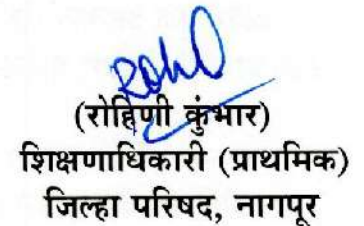 (रोहिणी कुंभार)
शिक्षणाधिकारी (प्राथमिक)
जिल्हा परिषद, नागपूर